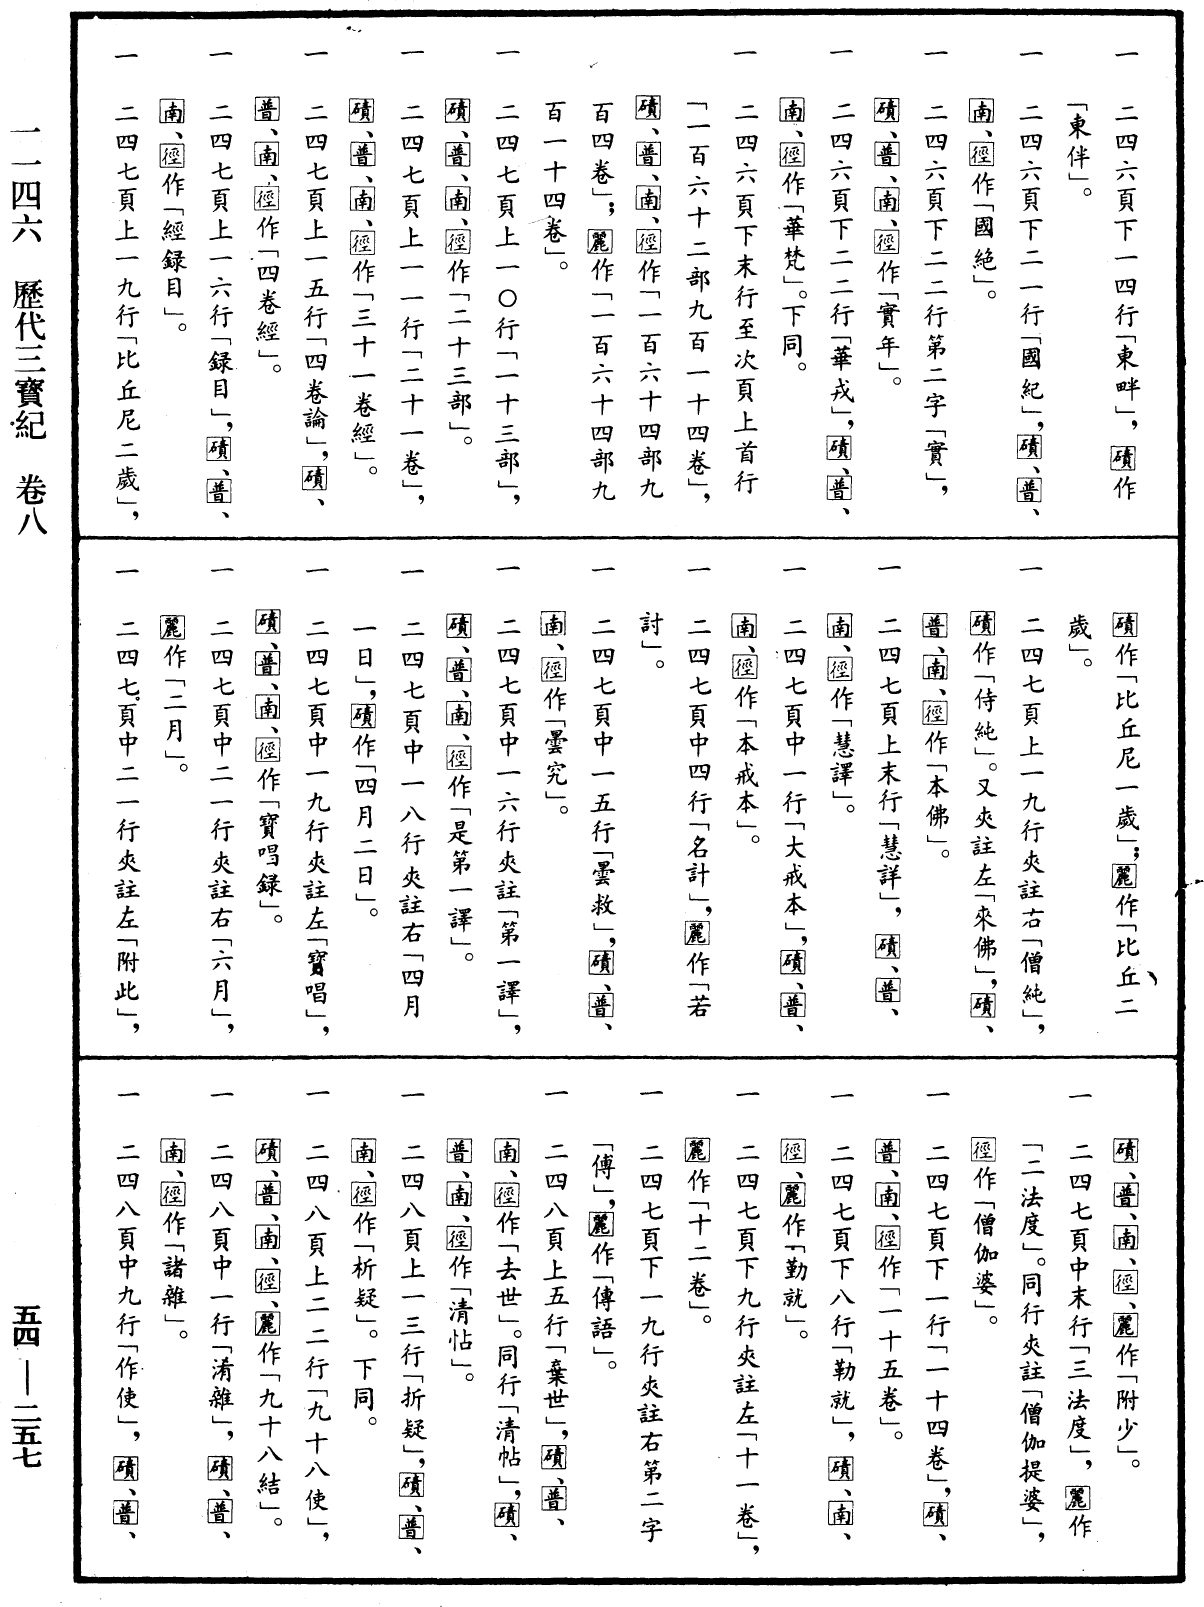 一一四六　歷代三寶紀　卷八
一　二四六頁下一四行「東畔」，磧作
「東伴」。
一　二四六頁下二一行「國紀」，磧、普、
南、徑作「國絕」。
一　二四六頁下二二行第二字「實」，
磧、普、南、徑作「實年」。
一　二四六頁下二二行「華戎」，磧、普、
南、徑作「華梵」。下同。
一　二四六頁下末行至次頁上首行
「一百六十二部九百一十四卷」，
磧、普、南、徑作「一百六十四部九
百四卷」；麗作「一百六十四部九
百一十四卷」。
一　二四七頁上一〇行「一十三部」，
磧、普、南、徑作「二十三部」。
一　二四七頁上一一行「二十一卷」，
磧、普、南、徑作「三十一卷經」。
一　二四七頁上一五行「四卷論」，磧、
普、南、徑作「四卷經」。
一　二四七頁上一六行「録目」，磧、普、
南、徑作「經録目」。
一　二四七頁上一九行「比丘尼二歲」，
磧作「比丘尼一歲」；麗作「比丘二
歲」。
一　二四七頁上一九行夾註右「僧純」，
磧作「侍純」。又夾註左「來佛」，磧、
普、南、徑作「本佛」。
一　二四七頁上末行「慧詳」，磧、普、
南、徑作「慧譯」。
一　二四七頁中一行「大戒本」，磧、普、
南、徑作「本戒本」。
一　二四七頁中四行「名計」，麗作「若
討」。
一　二四七頁中一五行「曇救」，磧、普、
南、徑作「曇究」。
一　二四七頁中一六行夾註「第一譯」，
磧、普、南、徑作「是第一譯」。
一　二四七頁中一八行夾註右「四月
一日」，磧作「四月二日」。
一　二四七頁中一九行夾註左「寶唱」，
磧、普、南、徑作「寶唱録」。
一　二四七頁中二一行夾註右「六月」，
麗作「二月」。
一　二四七頁中二一行夾註左「附此」，
磧、普、南、徑、麗作「附少」。
一　二四七頁中末行「三法度」，麗作
「二法度」。同行夾註「僧伽提婆」，
徑作「僧伽婆」。
一　二四七頁下一行「一十四卷」，磧、
普、南、徑作「一十五卷」。
一　二四七頁下八行「勒就」，磧、南、
徑、麗作「勤就」。
一　二四七頁下九行夾註左「十一卷」，
麗作「十二卷」。
一　二四七頁下一九行夾註右第二字
「傳」，麗作「傳語」。
一　二四八頁上五行「棄世」，磧、普、
南、徑作「去世」。同行「清帖」，磧、
普、南、徑作「清帖」。
一　二四八頁上一三行「折疑」，磧、普、
南、徑作「析疑」。下同。
一　二四八頁上二二行「九十八使」，
磧、普、南、徑、麗作「九十八結」。
一　二四八頁中一行「淆雜」，磧、普、
南、徑作「諸雜」。
一　二四八頁中九行「作使」，磧、普、
五四—二五七